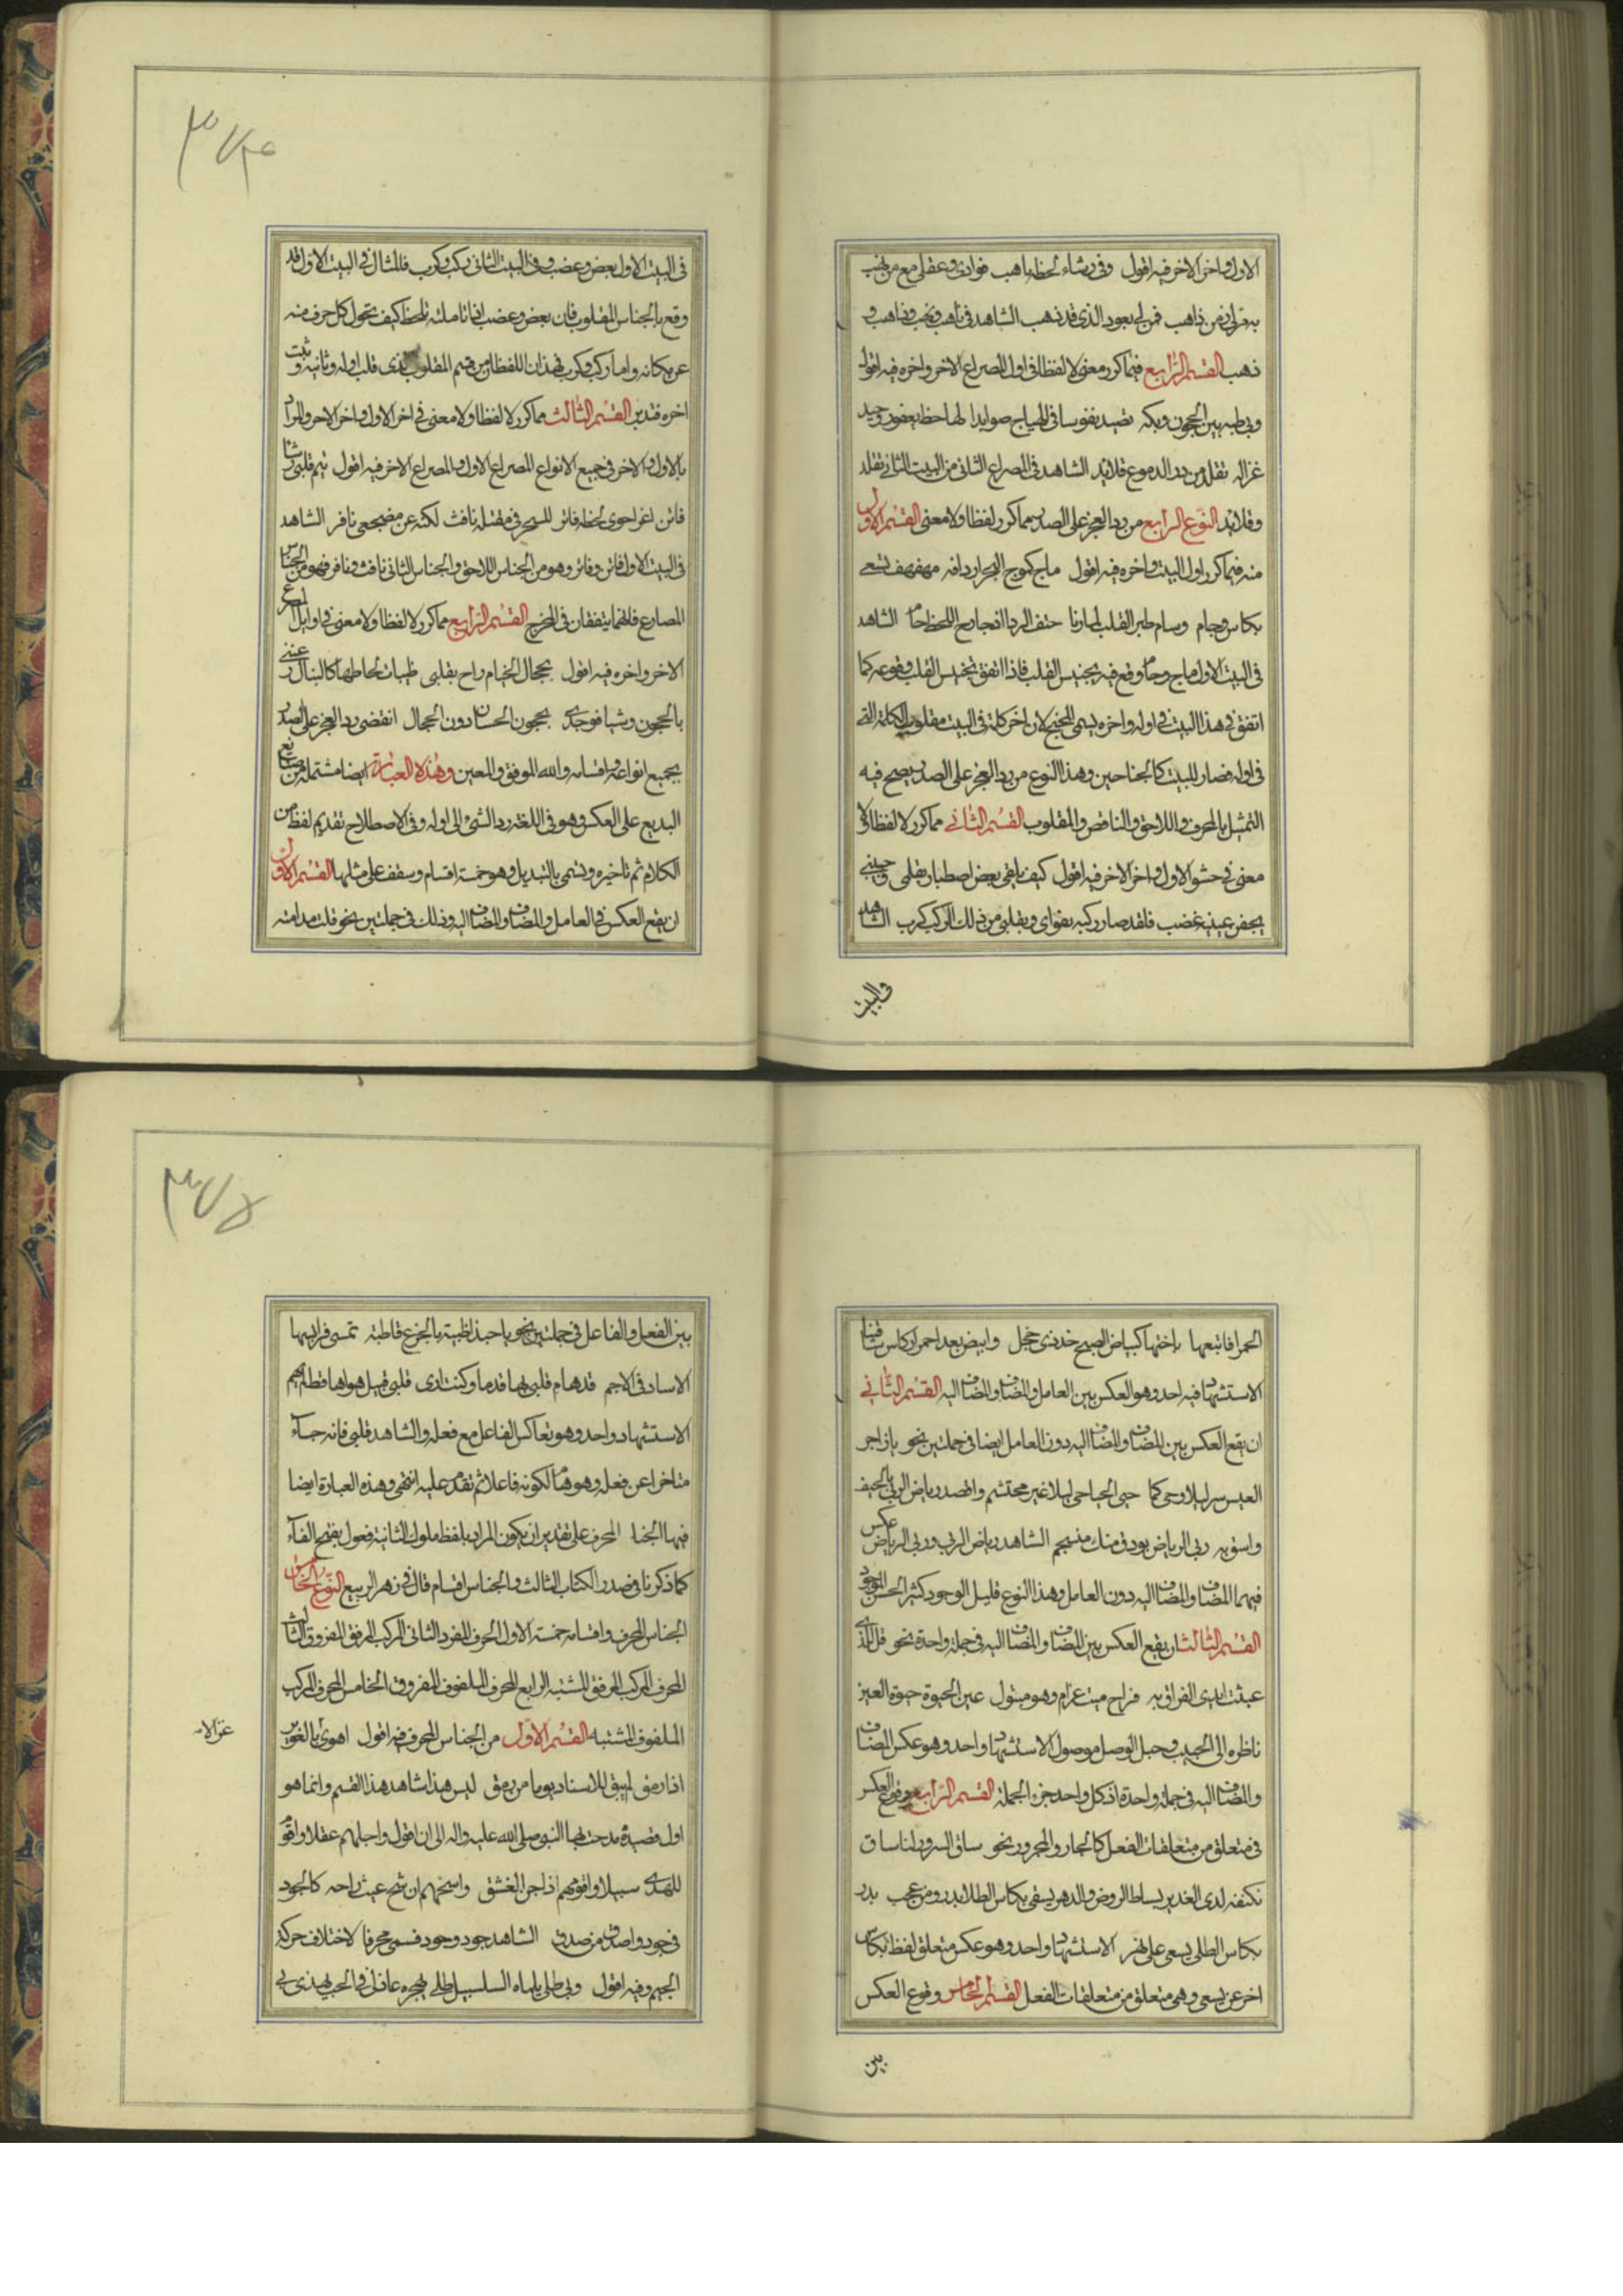 الاول واخر الاخر فيه اقول وفي رشاء لحظه ناهب فوادي وعقلي مع من نهب
به قراري من ذاهب فمن لي بعود الذي قد ذهب الشاهد في ناهب ونهب وذاهب و
ذهب القسم الرابع فيما كرر معنى لا لفظا في اول المصراع الاخر واخره فيه اقول
وبي ظبية بين الحجون ومكة تصيد نفوسا في الهياج صوايدا لها حظ يعفور وجيد
غزالة تقلد من در الدموع قلايد الشاهد في المصراع الثاني من البيت الثاني تقلد
وقلايد النوع الرابع من رد العجز على الصدر مما كرر لفظا ولا معنى القسم الاول
منه فيما كرر اول البيت واخره فيه اقول ماج كموج البحر اردافه مهفهف يسعى
بكاس وجام وسام طير القلب لما رنا حتف الردا اذ جارح اللحظ حام الشاهد
في البيت الاول ماج وجام وقع فيه تجنيس القلب فاذا اتفق تجنيس القلب وقوعه كما
اتفق في هذا البيت في اوله واخره يسمى المجنح لان اخر كلمة في البيت مقلوب الكلمة التي
في اوله فصار للبيت كالجناحين وهذا النوع من رد العجز على الصدر يصح فيه
التمثيل بالمحرف واللاحق والناقص والمقلوب القسم الثاني مما كرر لا لفظا ولا
معنى في حشو الاول واخر الاخر فيه اقول كيف يلقى بعض اصطبار بقلبي وحبيبي
بجفن عينيه غضب فلقد صار ركبه بفواي وبقلبي من ذلك الركب كرب الشاهد
في البيت
٣٧٤
في البيت الاول بعض وغضب وفي البيت الثاني ركب وكرب فالمثال في البيت الاول قد
وقع بالجناس المقلوب فان بعض وغضب اذا تاملته تلحظ كيف تحول كل حرف منه
عن مكانه واما ركب وكرب فهذان اللفظان من قسم المقلوب الذي قلب اوله وثانيه وثبت
اخره فتدبر القسم الثالث مما كرر لا لفظا ولا معنى في اخر الاول واخر الاخر والمراد
بالاول والاخر في جميع الانواع المصراع الاول والمصراع الاخر فيه اقول تيم قلبي رشا
فاتن اغر احوى لحظه فاتر للسحر في مقتله نافث لكنه عن مضجعي نافر الشاهد
في البيت الاول فاتن وفاتر وهو من الجناس اللاحق والجناس الثاني نافث ونافر فهو من الجناس
المضارع فانهما يتفقان في المخرج القسم الرابع مما كرر لا لفظا ولا معنى في اوايل المصرع
الاخر واخره فيه اقول بحجال الخيام راح بقلبي ظبيات لحاظها كالنبال رعنني
بالحجون وشبا فوجدي بحجون الحسان دون الحجال انقضى رد العجز على الصدر
بجميع انواعه واقسامه والله الموفق والمعين وهذه العبارة ايضا مشتملة من صنايع
البديع على العكس وهو في اللغة رد الشيء الى اوله وفي الاصطلاح تقديم لفظ من
الكلام ثم تاخيره ويسمى بالتبديل وهو خمسة اقسام وستقف على مثلها القسم الاول
ان يقع العكس في العامل والمضاف والمضاف اليه وذلك في جملتين نحو قلت مدامته
الحمرا فاتبعها باختها كبياض الصبح خد ذي خجل وابيض بعد احمرار كاس ساقينا
الاستشهاد فيه احد وهو العكس بين العامل والمضاف والمضاف اليه القسم الثاني
ان يقع العكس بين المضاف والمضاف اليه دون العامل ايضا في جملتين نحو يا زاجر
العيس سر ليلا وحي كما حيى الحيا حي ليلا غير محتشم واقصد رياض الربى بالخيف
واسق به ربى الرياض بودق منك منسجم الشاهد رياض الربى وربى الرياض عكس
فيهما المضاف والمضاف اليه دون العامل وهذا النوع قليل الوجود كثير الحسن الموجود
القسم الثالث ان يقع العكس بين المضاف والمضاف اليه في جملة واحدة نحو قل للذي
عبثت ايدي الفراق به فراح ميت غرام وهو مبتول عين الحيوة حيوة العين
ناظره الى الحبيب وحبل الوصل موصول الاستشهاد واحد وهو عكس المضاف
والمضاف اليه في جملة واحدة اذ كل واحد جزء الجملة القسم الرابع وقوع العكس
في متعلق من متعلقات الفعل كالجار والمجرور نحو ساق السرور لنا ساق
تكنفه لدى الغدير بساط الروض والدهر يسقي بكاس الطلا بدر ومن عجب بدر
بكاس الطلى يسعى على نهر الاستشهاد واحد وهو عكس متعلق لفظ بكاس
اخر عن يسعى وهي متعلق من متعلقات الفعل القسم الخامس وقوع العكس
بين
٣٧٥
بين الفعل والفاعل في جملتين نحو يا حبذا ظبية بالجزع قاطنة تمسى فرايسها
الاساد في الاجم قد هام قلبي بها قدما وكنت ارى قلبي قبيل هواها قط لم يهم
الاستشهاد واحد وهو تعاكس الفاعل مع فعله والشاهد قلبي فانه جاء
متاخرا عن فعله وهو هام لكونه فاعلا ثم تقدم عليه انتهى وهذه العبارة ايضا
فيها الجناس المحرف على تقدير ان يكون المراد بلفظ ملوك الثانية فعول بفتح الفاء
كما ذكرنا في صدر الكتاب الثالث والجناس اقسام قال في زهر الربيع النوع الخامس
الجناس المحرف واقسامه خمسة الاول المحرف المفرد الثاني المركب المرفق المفروق الثالث
المحرف المركب المرفق المشتبه الرابع المحرف الملفوف المفروق الخامس المحرف المركب
الملفوف المشتبه القسم الاول من الجناس المحرف فيه اقول اهوى بالغوير
غزالا
اذا رمق لم يبق للاساد يوما من رمق ليس هذا شاهد هذا القسم وانما هو
اول قصيدة مدحت بها النبي صلى الله عليه واله الى ان اقول واجلهم عقلا واقوم
للهدى سبيلا واقومهم اذا جن الغسق واسخهم ان شح غيث راحة كالجود
في جود واصدق من صدق الشاهد جود وجود قسمى محرفا لاختلاف حركة
الجيم وفيه اقول وبي طلى بلماه السلسبيل طلى بهجره عاذلي في الحب يهذي بي